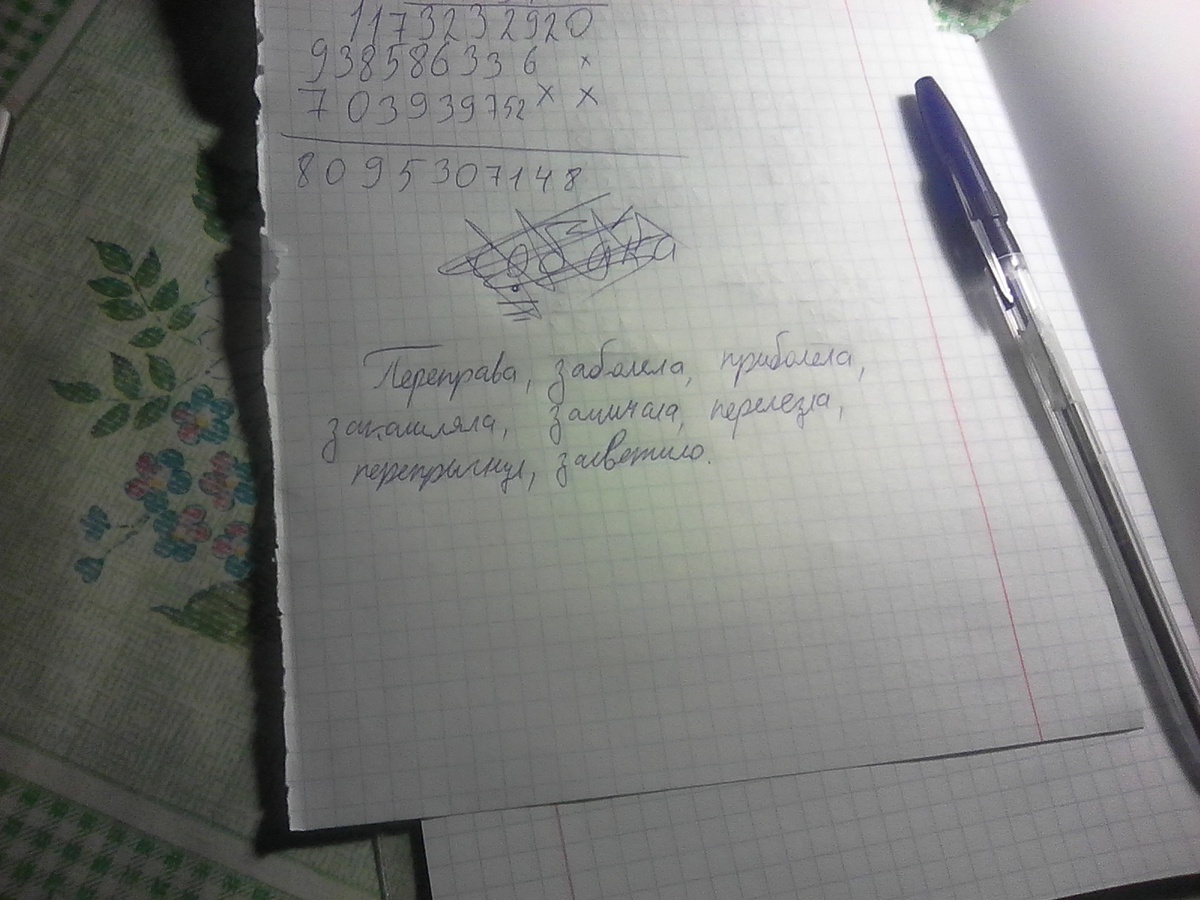 1173232920
938586336 x
703939752 x x
8095307148
собака
Переправа, заболела, приболела,
закашляла, замичала, перелезла,
перепрыгнул, засветило.